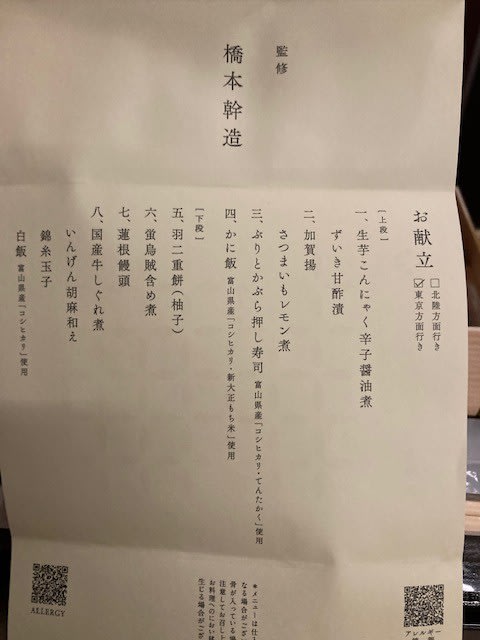 監修
橋本幹造
お献立
□北陸方面行き
☑東京方面行き
[上段]
一、生芋こんにゃく辛子醤油煮
ずいき甘酢漬
二、加賀揚
さつまいもレモン煮
三、ぶりとかぶら押し寿司 富山県産「コシヒカリ・てんたかく」使用
四、かに飯 富山県産「コシヒカリ・新大正もち米」使用
[下段]
五、羽二重餅(柚子)
六、蛍烏賊含め煮
七、蓮根饅頭
八、国産牛しぐれ煮
いんげん胡麻和え
錦糸玉子
白飯 富山県産「コシヒカリ」使用
*メニューは仕
なる場合がござ
骨が入っている場
注意してお召し
お料理へのにおい
生じる場合がござ
ALLERGY
アレルギー